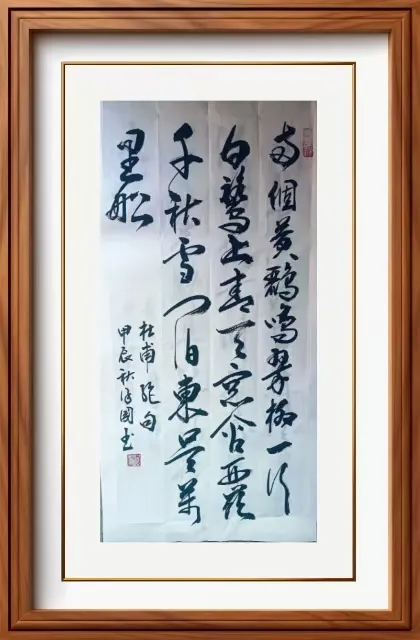 两個黄鸝鳴翠柳一行
白鷺上青天窓含西嶺
千秋雪门泊東吴萬
里船
杜甫绝句
甲辰秋國书